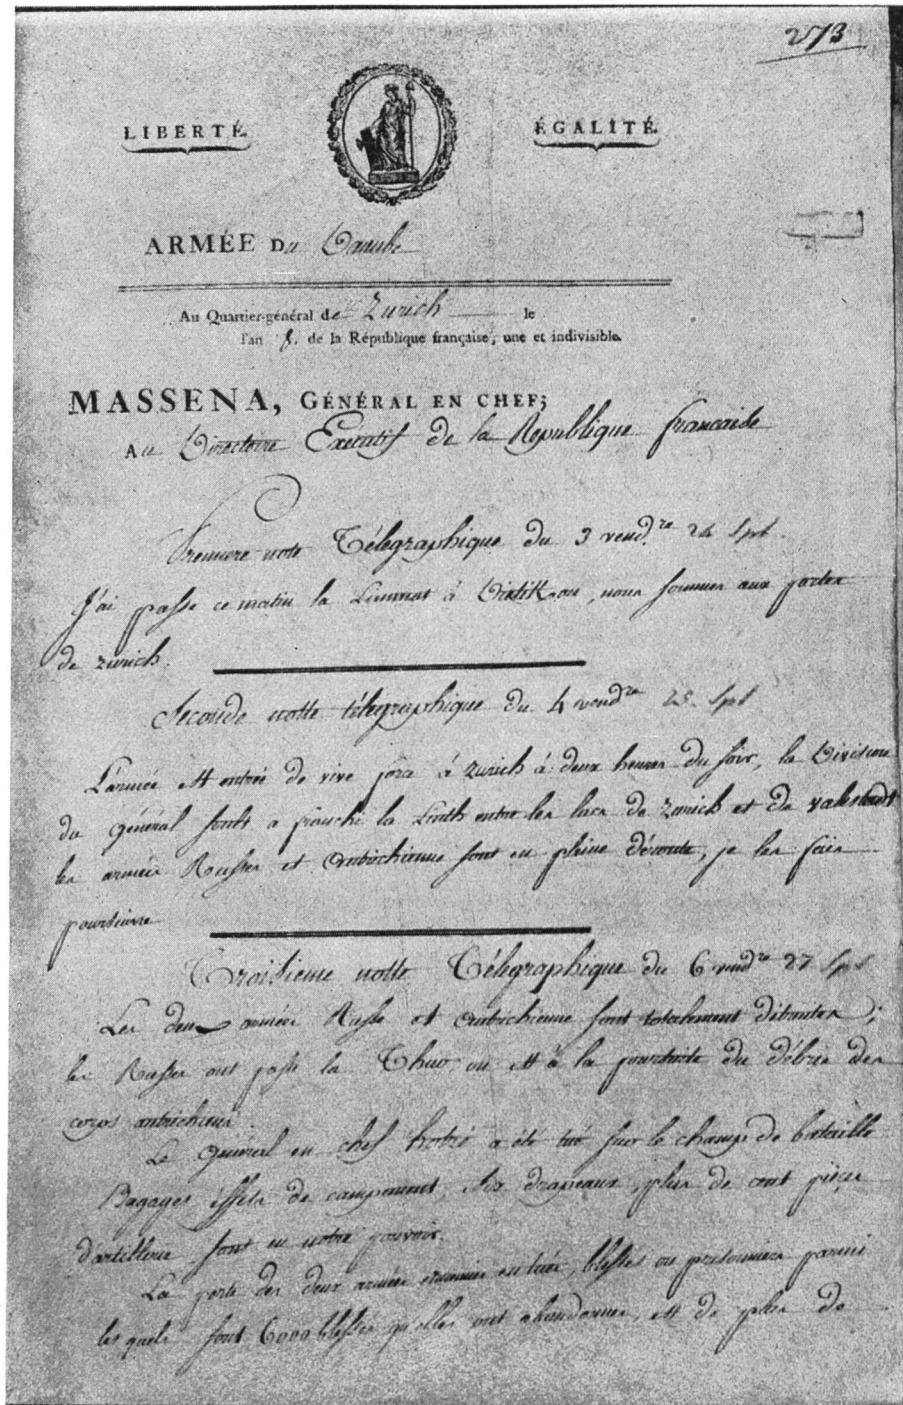 273
LIBERTÉ. ÉGALITÉ.
ARMÉE Du Danube
Au Quartier-général de Zurich le
l'an 8. de la République française, une et indivisible.
MASSENA, GÉNÉRAL EN CHEF;
Au Directoire Executif de la Republique francaise
Premiere note Télégraphique du 3 vend.re 24 Spt.
J'ai passé ce matin la Limmat à Dietikon, nous sommes aux portes
de Zurich.
Seconde notte télégraphique du 4 vendre 25. Spt
L'armée est entrée de vive force à Zurich à deux heures du soir, la Division
du général Soult a franchi la Linth entre les lacs de Zurich et de
les armées Russes et Autrichienne sont en pleine déroute, je les fais
poursuivre
Troisieme notte Télégraphique du 6 vendre 27 Spt
Les deux armées Russe et Autrichienne sont totalement détruites;
les Russes ont passé la Thur, on est à la poursuite du débris des
corps autrichiens.
Le général en chef hotzé a été tué sur le champ de bataille
Bagages effets de campement, six drapeaux, plus de cent pièces
d'artillerie sont en notre pouvoir.
La perte des deux armées ennemies en tués, blessés ou prisonniers parmi
lesquels sont 6000 blessés qu'elles ont abandonnés, est de plus de